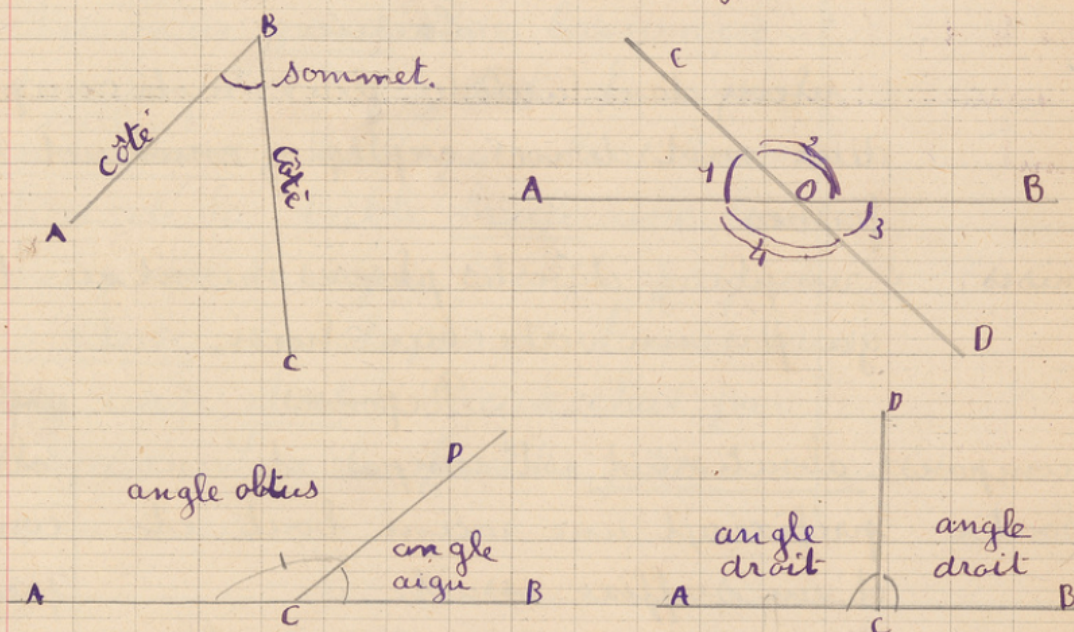 B
sommet.
côté
Côté
A
C
C
2
1
O
A
B
3
4
D
D
angle obtus
angle
aigu
A
C
B
D
angle
droit
angle
droit
A
C
B